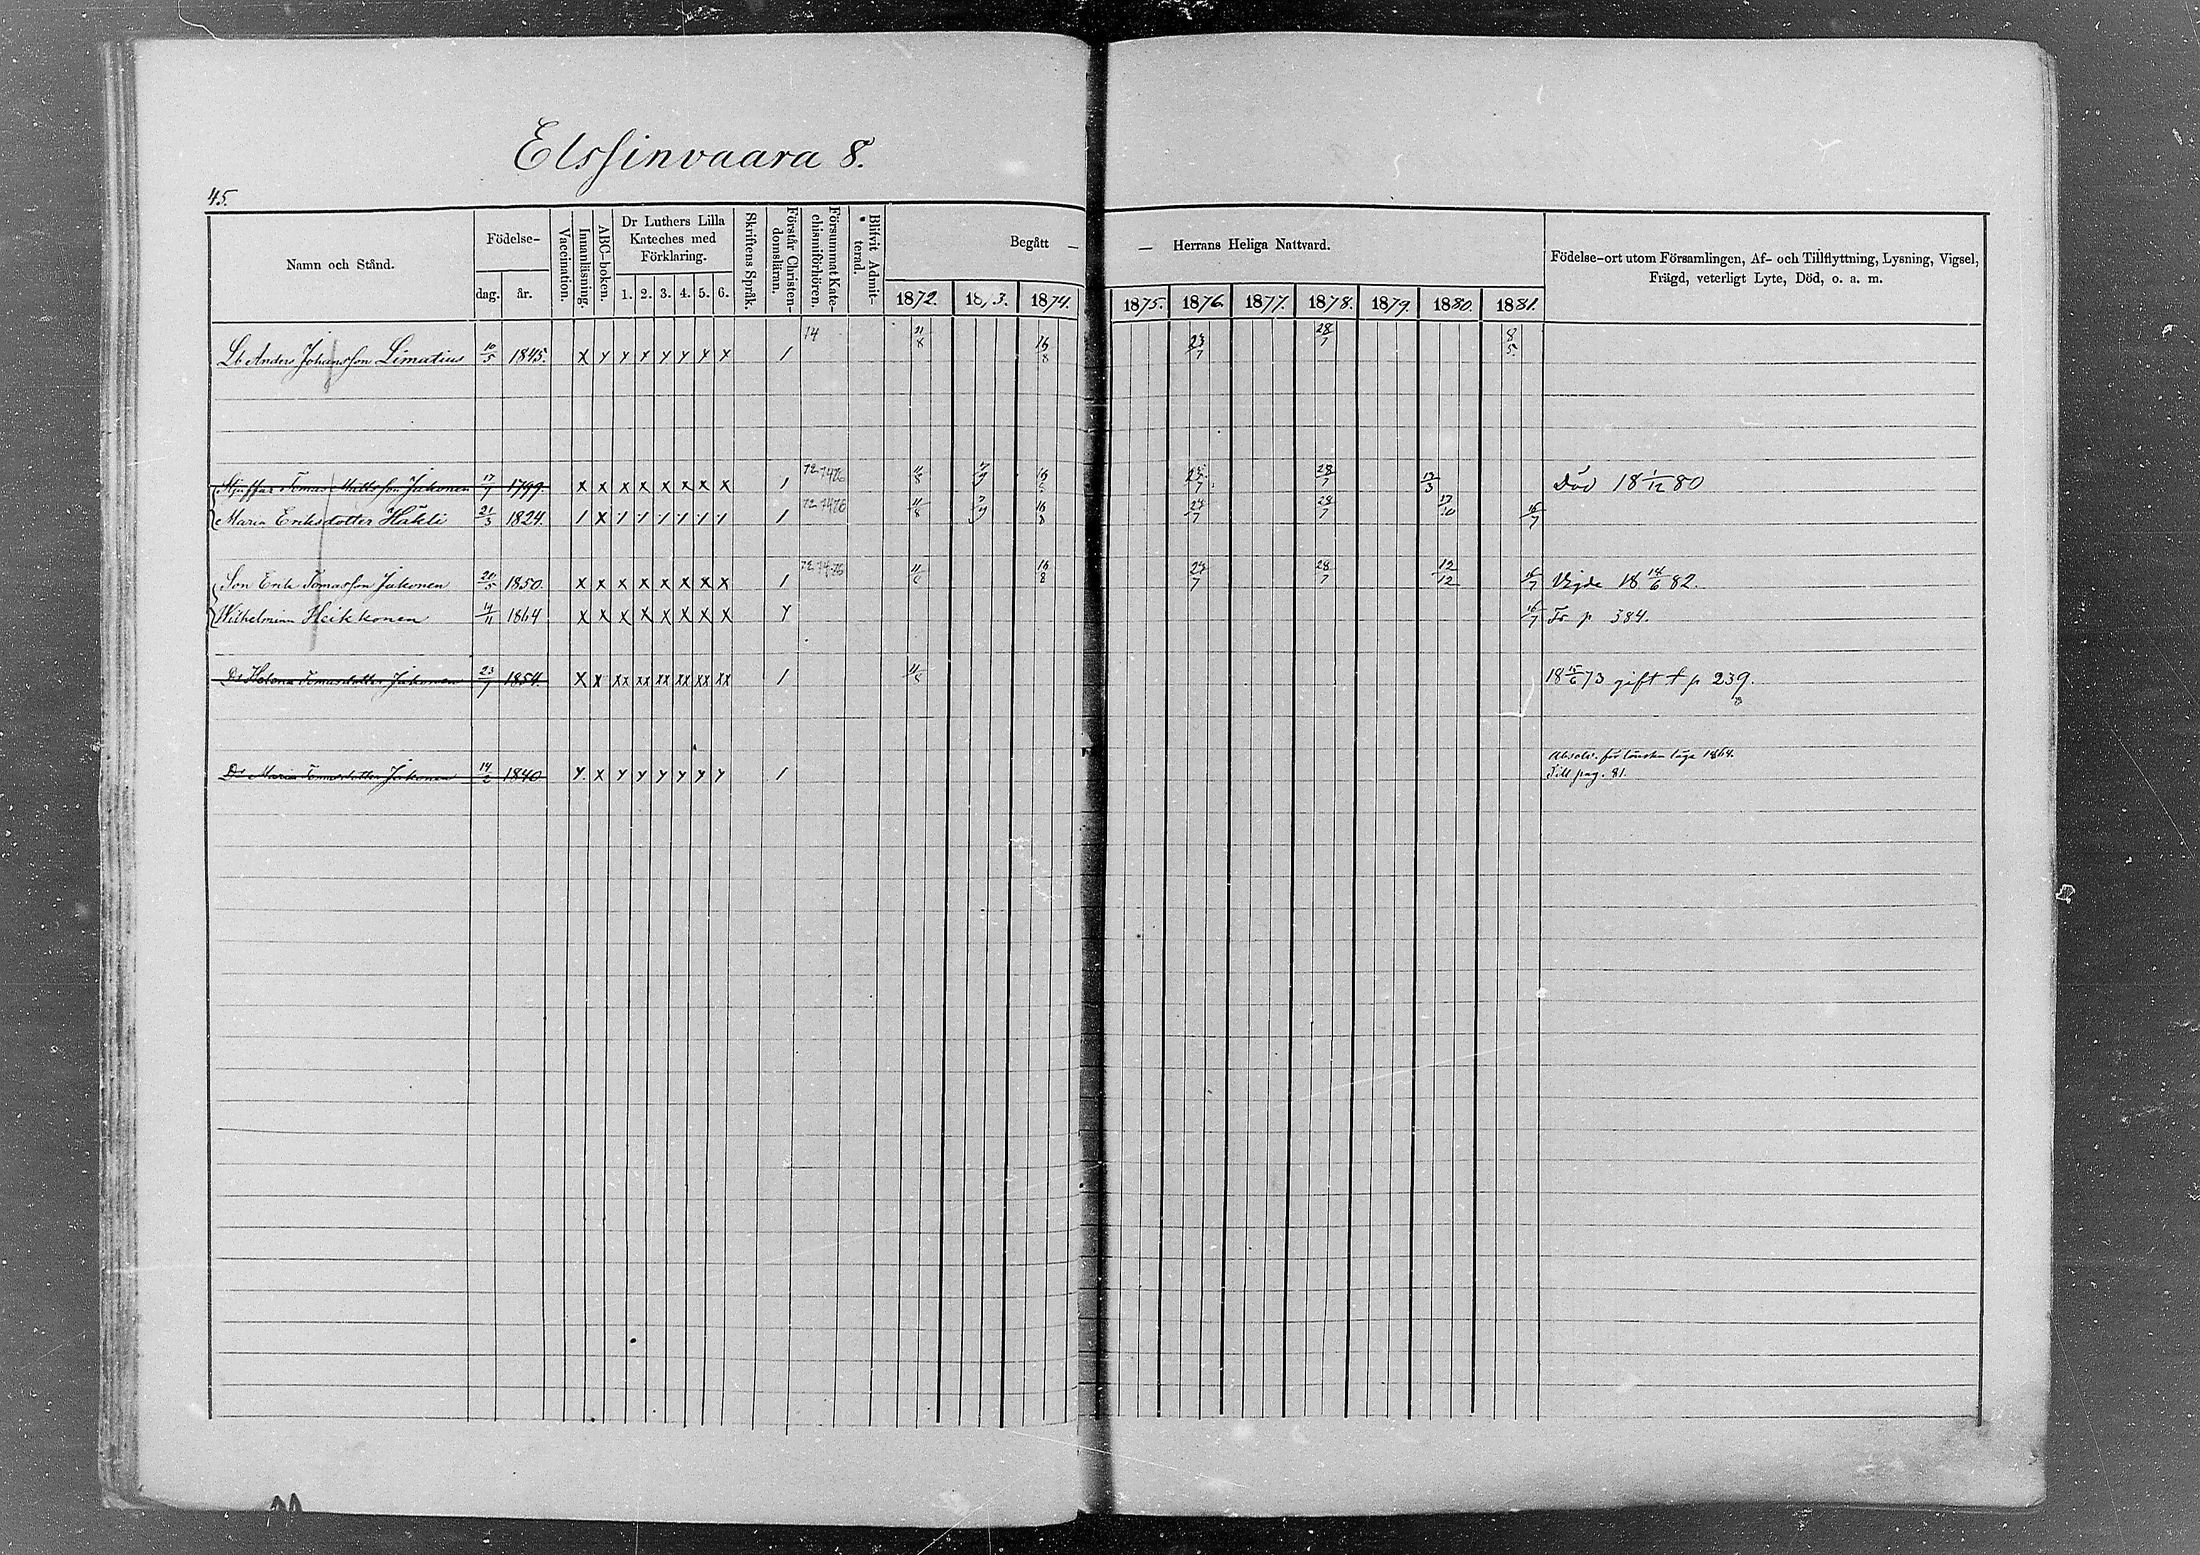 Elssinvaara 8.
45.
Namn och Stånd.
Födelse-
dag. år.
Vaccination.
Innanläsning.
ABC-boken.
Dr Luthers Lilla
Kateches med
Förklaring.
1. 2. 3. 4. 5. 6.
Skriftens Språk.
Förstår Christen-
domsläran.
Försummat Kate-
chismiförhören.
Blifvit Admit-
terad.
Begått —
— Herrans Heliga Nattvard.
1872. 18,3. 1874. 1875. 1876. 1877. 1878. 1879. 1880. 1881.
Födelse-ort utom Församlingen, Af- och Tillflyttning, Lysning, Vigsel,
Frägd, veterligt Lyte, Död, o. a. m.
Anders Johansson Limatius 10/5 1845. X Y Y X Y Y X X / 14 21/8 16/8 23/7 28/7 8/5.
Tomas Mattsson Jakonen 17/7 1799. X X X X X X X X / 72 74 76 11/8 16/8 28/7 13/3 Död 18 1/12 80
Maria Eriksdotter Häkli 21/3 1824. / X / / / / / / / 72 74 76 11/8 16/8 23/7 28/7 17/10 16/7
Son Erik Tomasson Jakonen 20/5 1850. X X X X X X X X / 72 74 76 11/8 16/8 23/7 28/7 12/12 16/7 Vigde 18 18/6 82.
Wilhelmina Heikkonen 14/11 1864 X X X X X X X X Y 16/7 Fr p 384.
Dr Helena Tomasdotter Jakonen 23/7 1854. X X XX XX XX XX XX XX / 11/8 18 15/6 73 gift t p 239.
Absolv. för lönska läge 1864.
Dr Maria Tomasdotter Jakonen 14/2 1840 Y X Y Y Y Y Y Y / Till pag. 81.